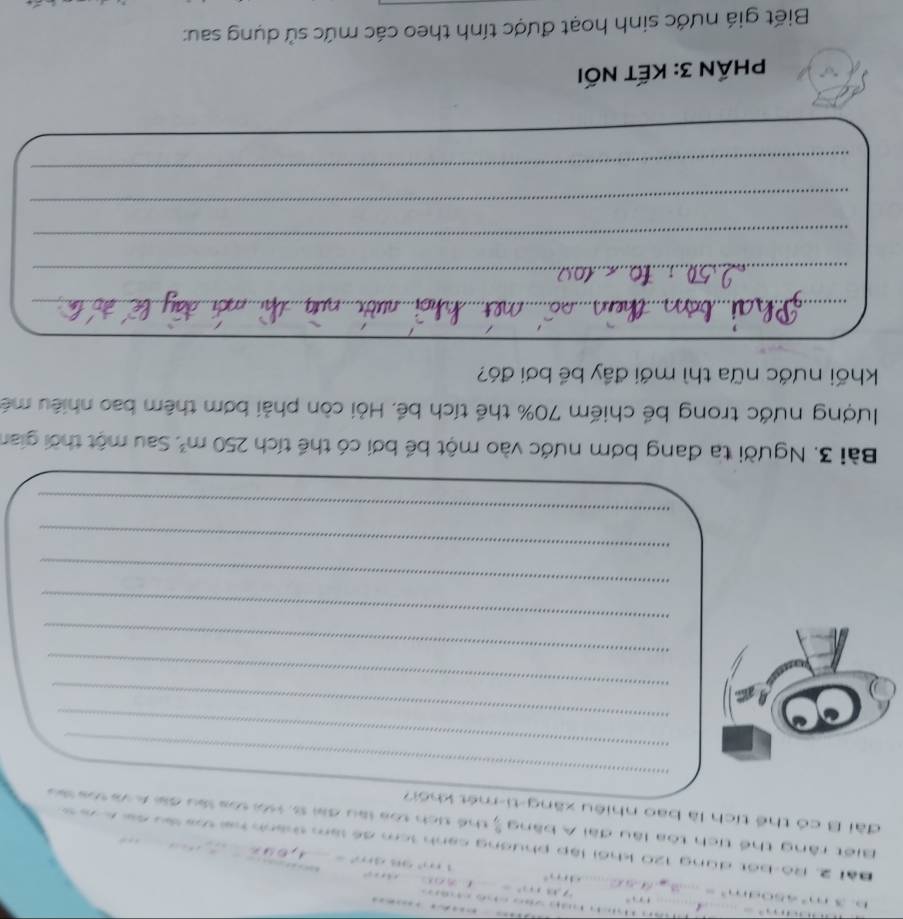 b. 3 m³ 450dm³ =
Bài 2. Rô-bốt dùng 120 khối lập phương cạnh 1cm để làm thành hai tòa lâu đài A và B.
Biết rằng thể tích tòa lâu đài A bằng thể tích tòa lâu đài B. Hỏi tòa lâu đài A và tòa lâu
đài B có thể tích là bao nhiêu xăng-ti-mét khối?
Bài 3. Người ta đang bơm nước vào một bể bơi có thể tích 250 m³. Sau một thời gian
lượng nước trong bể chiếm 70% thể tích bể. Hỏi còn phải bơm thêm bao nhiêu mé
khối nước nữa thì mới đầy bể bơi đó?
Phải bơm thêm số mét khối nước nữa thì mới đầy bể đó là:
250 : 70 x 100
PHẦN 3: KẾT NỐI
Biết giá nước sinh hoạt được tính theo các mức sử dụng sau: